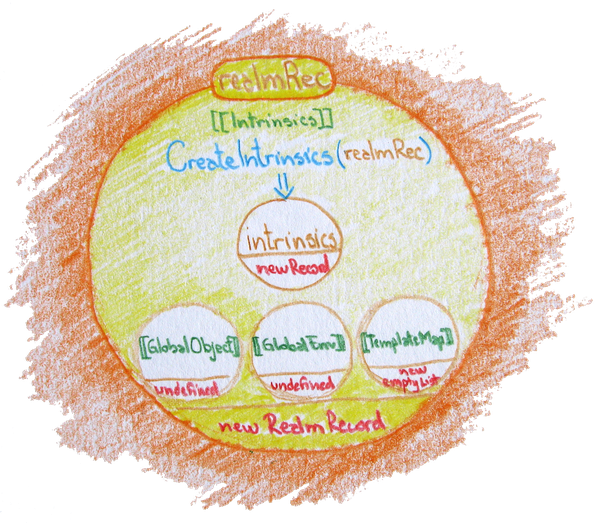 realmRec
[[Intrinsics]]
CreateIntrinsics(realmRec)
intrinsics
newRecord
[[GlobalObject]]
[[GlobalEnv]]
[[TemplateMap]]
undefined
undefined
new
emptyList
new RealmRecord